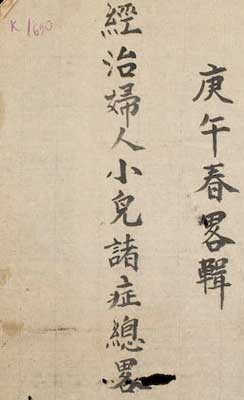 庚午春畧輯
經治婦人小兒諸症總畧
K 1690